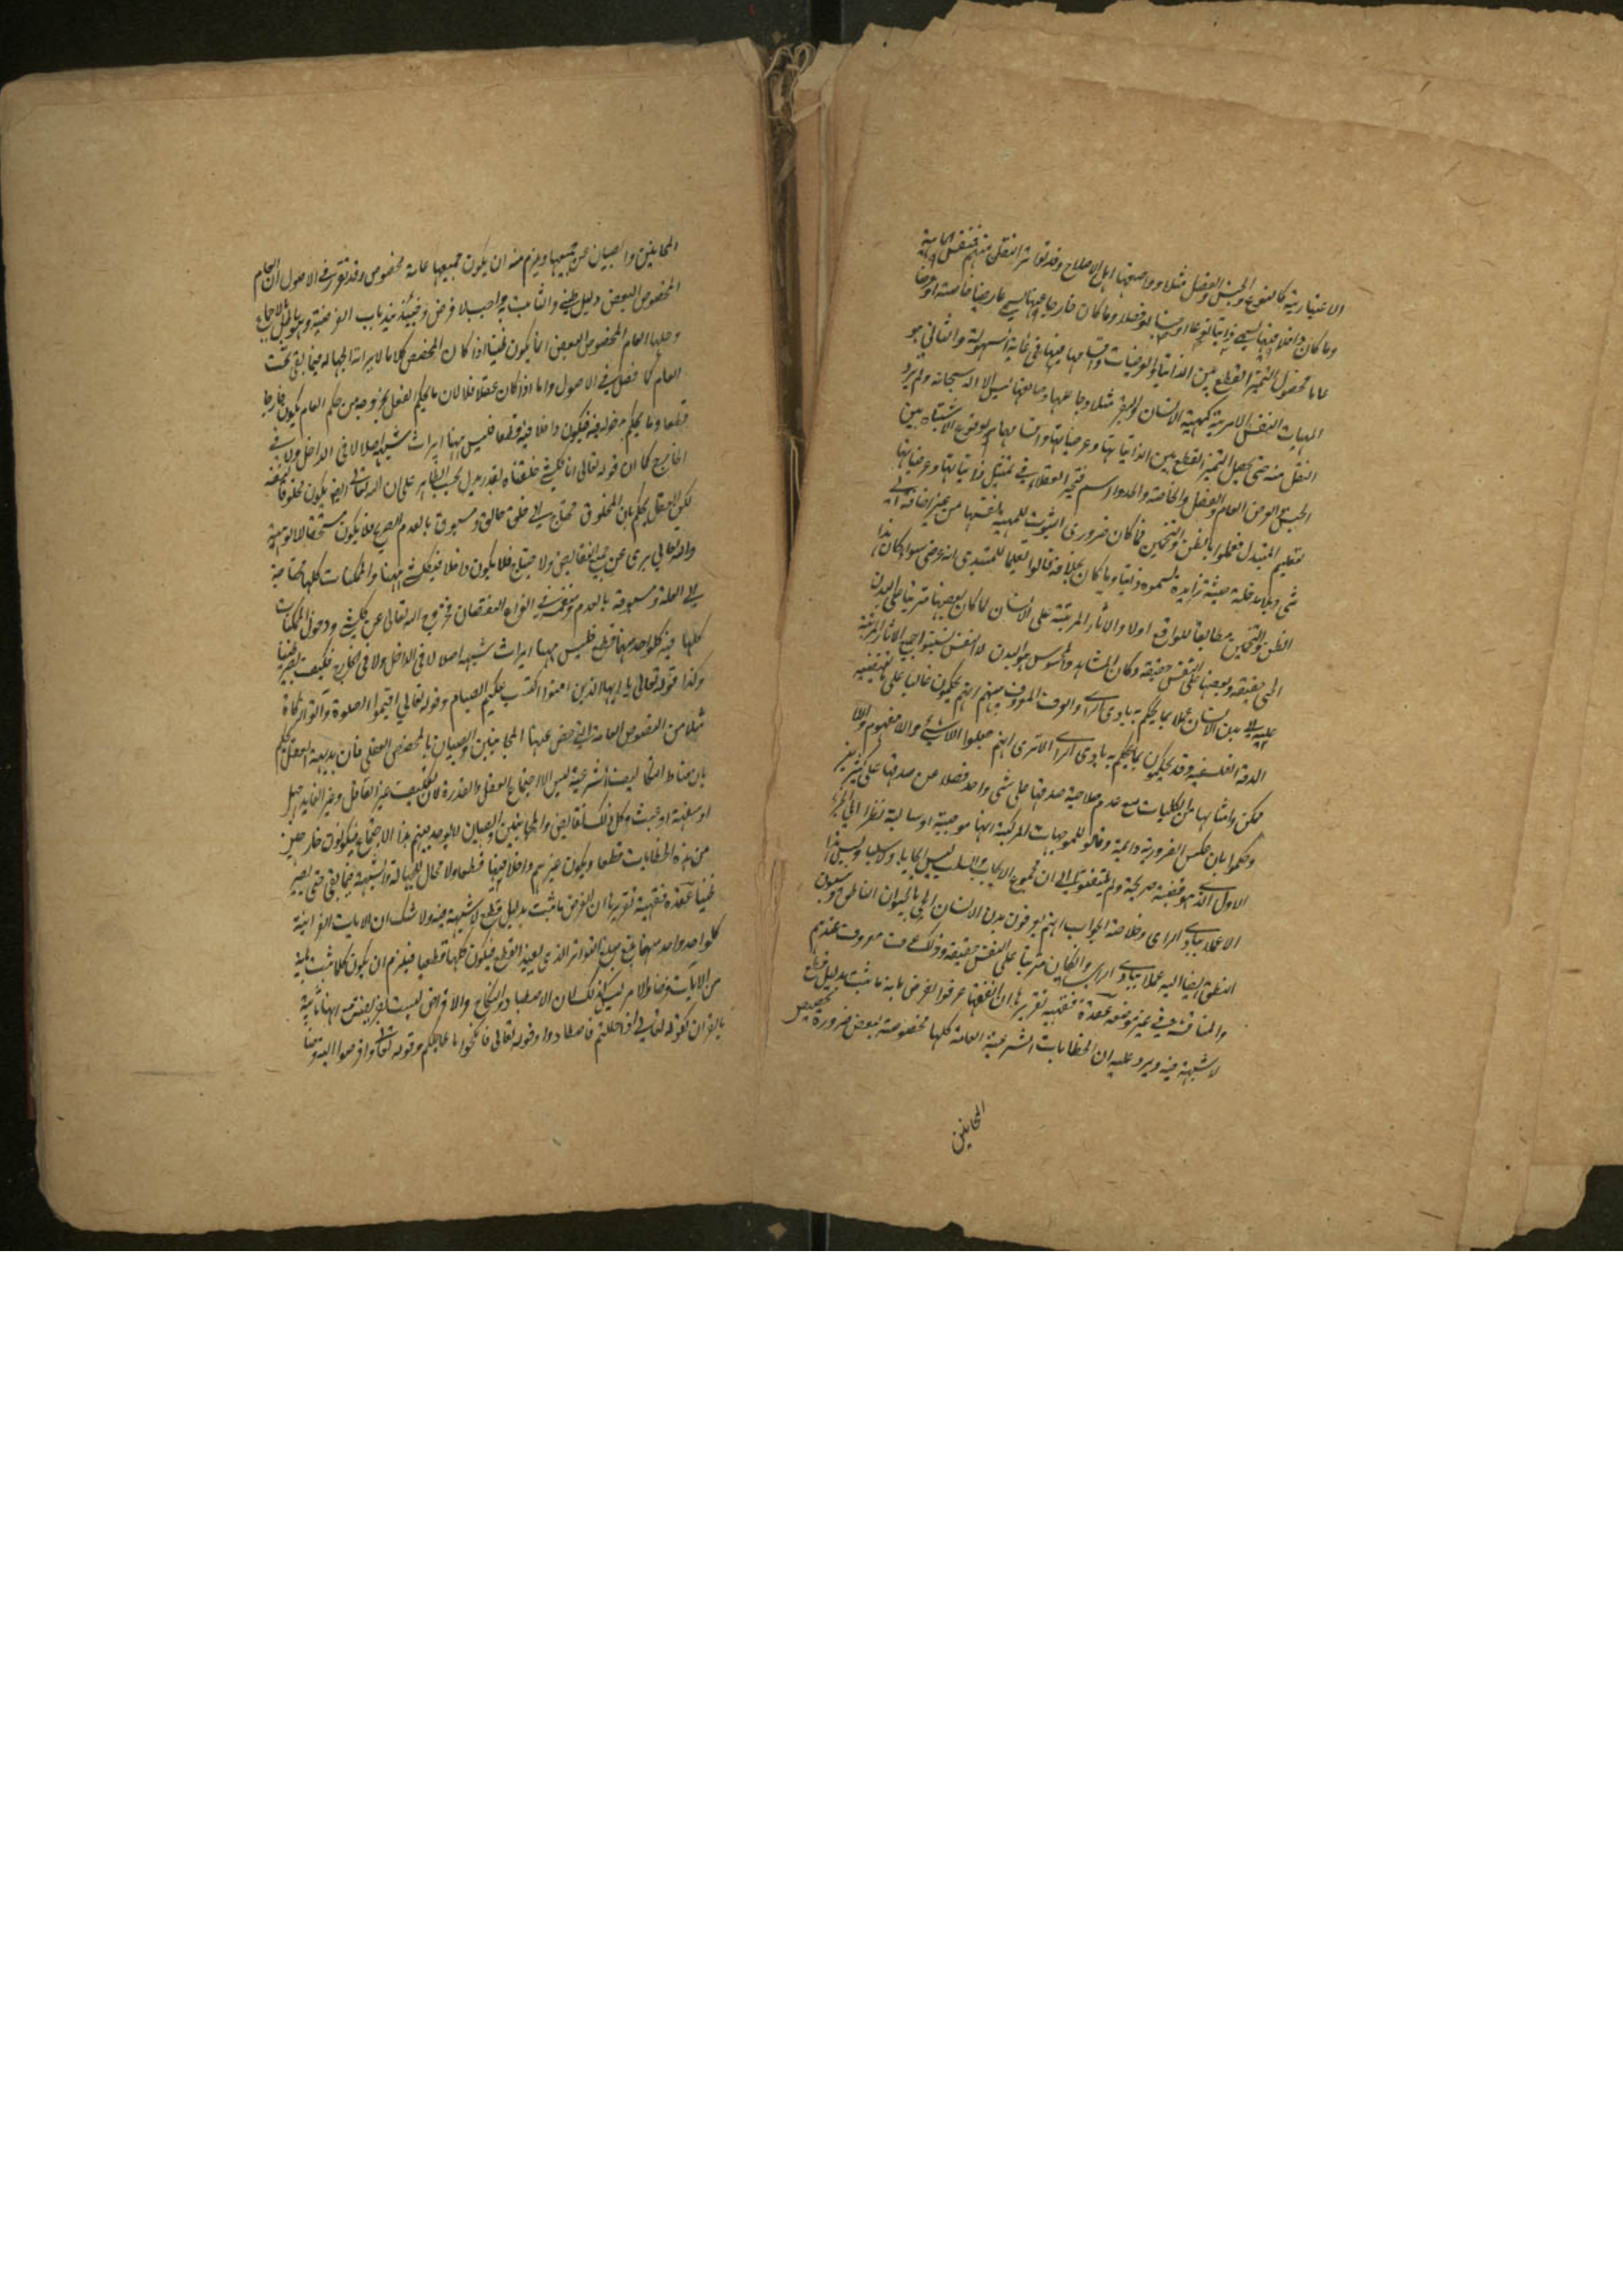 الاعتبارية كالنوع والجنس والفصل مثلا وواضعها اهل الاصلاح وقد تواتر النقل منهم
وما كان داخلا فيها يسمى ذاتيا نوعا او جنسا او فصلا وما كان خارجا عنها يسمى عارضا خاصته او عرضا
عاما فحصول التميز القطع بين الذاتيات والعرضيات واقسامها فيها في غاية السهولة والثاني هو
المهيات النفس الامرية كمهية الانسان والبقر مثلا وجاعلها وصانعها ليس الا الله سبحانه ولم يرد
النقل منه حتى يحصل التميز القطع بين الذاتياتها وعرضياتها واقسامها لوقوع الاشتباه بين
الجنس والعرض العام والفصل والخاصة والحد والرسم فتحير العقلاء في تمثيل ذاتياتها وعرضياتها
لتعليم المبتدى فعملوا بالظن والتخمين فما كان ضرورى الثبوت للمهية بالغتها من غير اضافة الى
شى وبلا مدخلة حيثية زايدة سموه ذاتيا وما كان بخلافه قالوا تعليما للمبتدى انه عرضى سواء كان هذا
الظن والتخمين مطابقا للواقع اولا والاثار المرتبة على الانسان لما كان بعضها مترتبا على البدن
الحى حقيقة وبعضها على النفس حقيقة وكان المشاهد والمحسوس هو البدن لا النفس نسبوا جميع الاثار المرتبة
عليه الى بدن الانسان عملا بما يحكم به بادى الراى والعرف المعروف بينهم انهم يحكمون غالبا على ما يقتضيه
الدقة الفلسفية وقد يحكمون بما يحكم به بادى الراى الا ترى انهم جعلوا اللاشئ واللامفهوم واللا
ممكن وامثالها من الكليات مع عدم صلاحية صدقها على شى واحد فضلا عن صدقها على كثيرين
وحكموا بان عكس الضرورية دائمة وقالوا للموجهات المركبة انها موجبة او سالبة نظرا الى الجزء
الاول الذى هو قضية صريحة ولم يلتفتوا الى ان مجموع الايجاب والسلب ليس ايجابا ولا سلبا وليس هذا
الا عملا ببادى الراى وخلاصة الجواب انهم يعرفون بدن الانسان الحى بالحيوان الناطق وينسبون
النطق ايضا اليه عملا ببادى الراى وان كان مترتبا على النفس حقيقة وذلك عرف معروف عندهم
والمناقشة فى غير موضعه عقدة فقهية تقريرها ان الفقهاء عرفوا الفرض بانه ما ثبت بدليل قطع
لا شبهة فيه ويرد عليه ان الخطابات الشرعية العامة كلها مخصوصة ببعض ضرورة تخصيص
المجانين
المجانين والصبيان عن جميعها ويلزم منه ان يكون جميعها عامة مخصوص وقد تقرر فى الاصول ان العام
المخصوص البعض دليل ظنى والثابت به واجب لا فرض وحينئذ ينسد باب الفرضية وهو باطل بالاجماع
وحلها العام المخصوص البعض انما يكون ظنيا اذا كان المخصص كلاما لايراثه الجهالة فيما بقى تحت
العام كما فصل فى الاصول واما اذا كان عقلا فلا لان ما يحكم العقل بخروجه من حكم العام يكون خارجا
قطعا وما يحكم بدخوله فيه فيكون داخلا فيه قطعا فليس ههنا ايراث شبهة اصلا لا فى الداخل ولا فى
الخارج كما ان قوله تعالى انا كل شئ خلقناه بقدر يدل بحسب الظاهر على ان الله تعالى ايضا يكون مخلوقا لنفسه
لكن العقل يحكم بان المخلوق محتاج الى خلق خالق ومسبوق بالعدم الصريح فلا يكون مستحقا للالوهية
والله تعالى برى عن جميع النقايص ولا يحتاج فلا يكون داخلا فى كل شئ ههنا والممكنات كلها محتاجة
الى العلة ومسبوقة بالعدم ومنغمسة فى انواع النقصان فخروج الله تعالى عن كل شئ ودخول الممكنات
كلها فيه كلواحد منهما قطع فليس ههنا ايراث شبهة اصلا لا فى الداخل ولا فى الخارج فكيف يصير ظنيا
وكذا قوله تعالى يا ايها الذين امنوا كتب عليكم الصيام وقوله تعالى اقيموا الصلوة وآتوا الزكاة
مثلا من النصوص العامة التى خص عنها المجانين والصبيان بالمخصص العقلى فان بديهة العقل يحكم
بان مناط التكاليف الشرعية ليس الا اجتماع العقل والقدرة لان تكليف غير العاقل وغير القادر جهل
او سفه او عبث وكل ذلك نقايص والمجانين والصبيان لا يوجد فيهم هذا الاجتماع فيكونون خارجين
من هذه الخطابات قطعا ويكون غيرهم داخلا فيها قطعا ولا مجال للجهالة والشبهة فيما بقى حتى يصير
ظنيا عقدة فقهية تقريرها ان الفرض ما ثبت بدليل قطع لا شبهة فيه ولا شك ان الايات القرانية
كلواحد واحد منها بلغ مبلغ التواتر الذى يفيد القطع فيكون كلها قطعيا فيلزم ان يكون كلما ثبت باية
من الايات فرضا والامر ليس كذلك لان الاصطياد والنكاح والاقراض ليست بفريضة مع انها ثابتة
بالقران كقوله تعالى واذا حللتم فاصطادوا وقوله تعالى فانكحوا ما طاب لكم وقوله تعالى واقرضوا الله قرضا